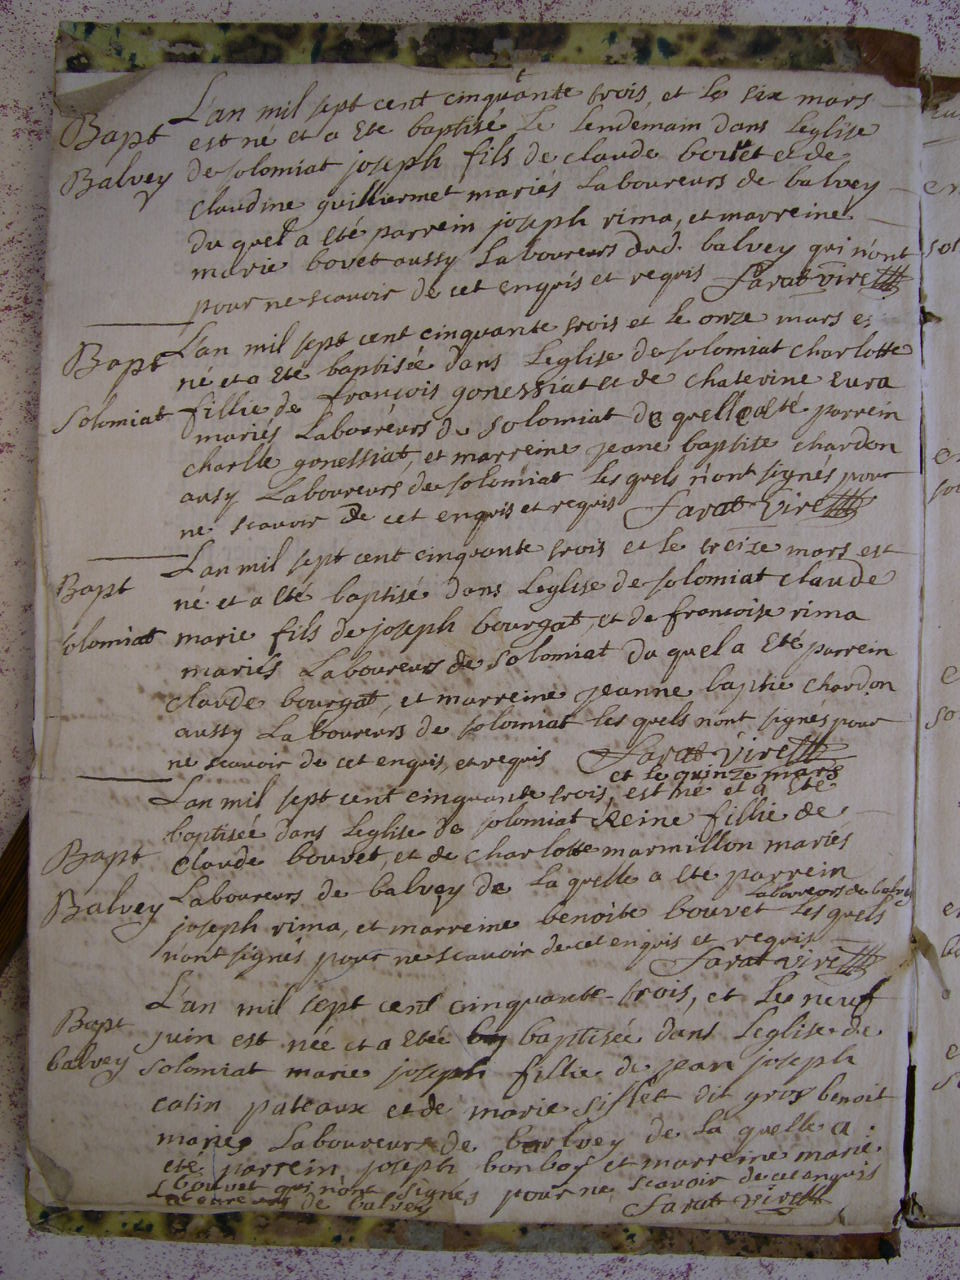 L'an mil sept cent cinquante trois, et le six mars
Bapt est né et a eté baptisé le lendemain dans Leglise
Balvey de solomiat joseph fils de claude bouvet et de
claudine guilliermet mariés Laboureurs de balvey
du quel a eté parrein joseph rima, et marreine
marie bovet aussy Laboureurs dud. balvey qui n'ont
pour ne scavoir de cet enquis et requis Sarat vire
L'an mil sept cent cinquante trois et le onze mars est
Bapt né et a eté baptisée dans Leglise de solomiat charlotte
Solomiat fillie de françois gonessiat et de chaterine Eura
mariés Laboureurs de solomiat de quelle a eté parrein
charlle gonessiat, et marreine jeane baptite chardon
ausy Laboureurs de solomiat les quels n'ont signés pour
ne scavoir de cet enquis et requis Sarat Vire
L'an mil sept cent cinquante trois et le treize mars est
Bapt né et a eté baptisé dans Leglise de solomiat claude
solomiat marie fils de joseph bourgat, et de francoise rima
mariés Laboureurs de solomiat du quel a eté parrein
claude bourgat, et marreine jeanne baptie chardon
aussy Laboureurs de solomiat les quels nont signés pour
ne scavoir de cet enquis, et requis Sarat Vire
et le quinze mars
L'an mil sept cent cinquante trois, est né et a eté
baptisée dans Leglise de solomiat Reine fillie de
Bapt claude bouvet, et de charlotte marmillon mariés
Balvey Laboureurs de balvey de La quelle a eté parrein
Laboureurs de balvey
joseph rima, et marreine benoite bouvet Les quels
n'ont signés pour ne scavoir de cet enquis et requis
Sarat vire
L'an mil sept cent cinquante-trois, et Le neuf
Bapt juin est née et a etéé baptisée dans Leglise de
balvey solomiat marie joseph fillie de jean joseph
catin pateaux et de marie sislet dit gros benoit
mariés Laboureurs de balvey de La quelle a
eté parrein joseph bonbos et marreine marie
bouvet qui n'ont signés pour ne scavoir de cet enquis
de balvey Sarat vire